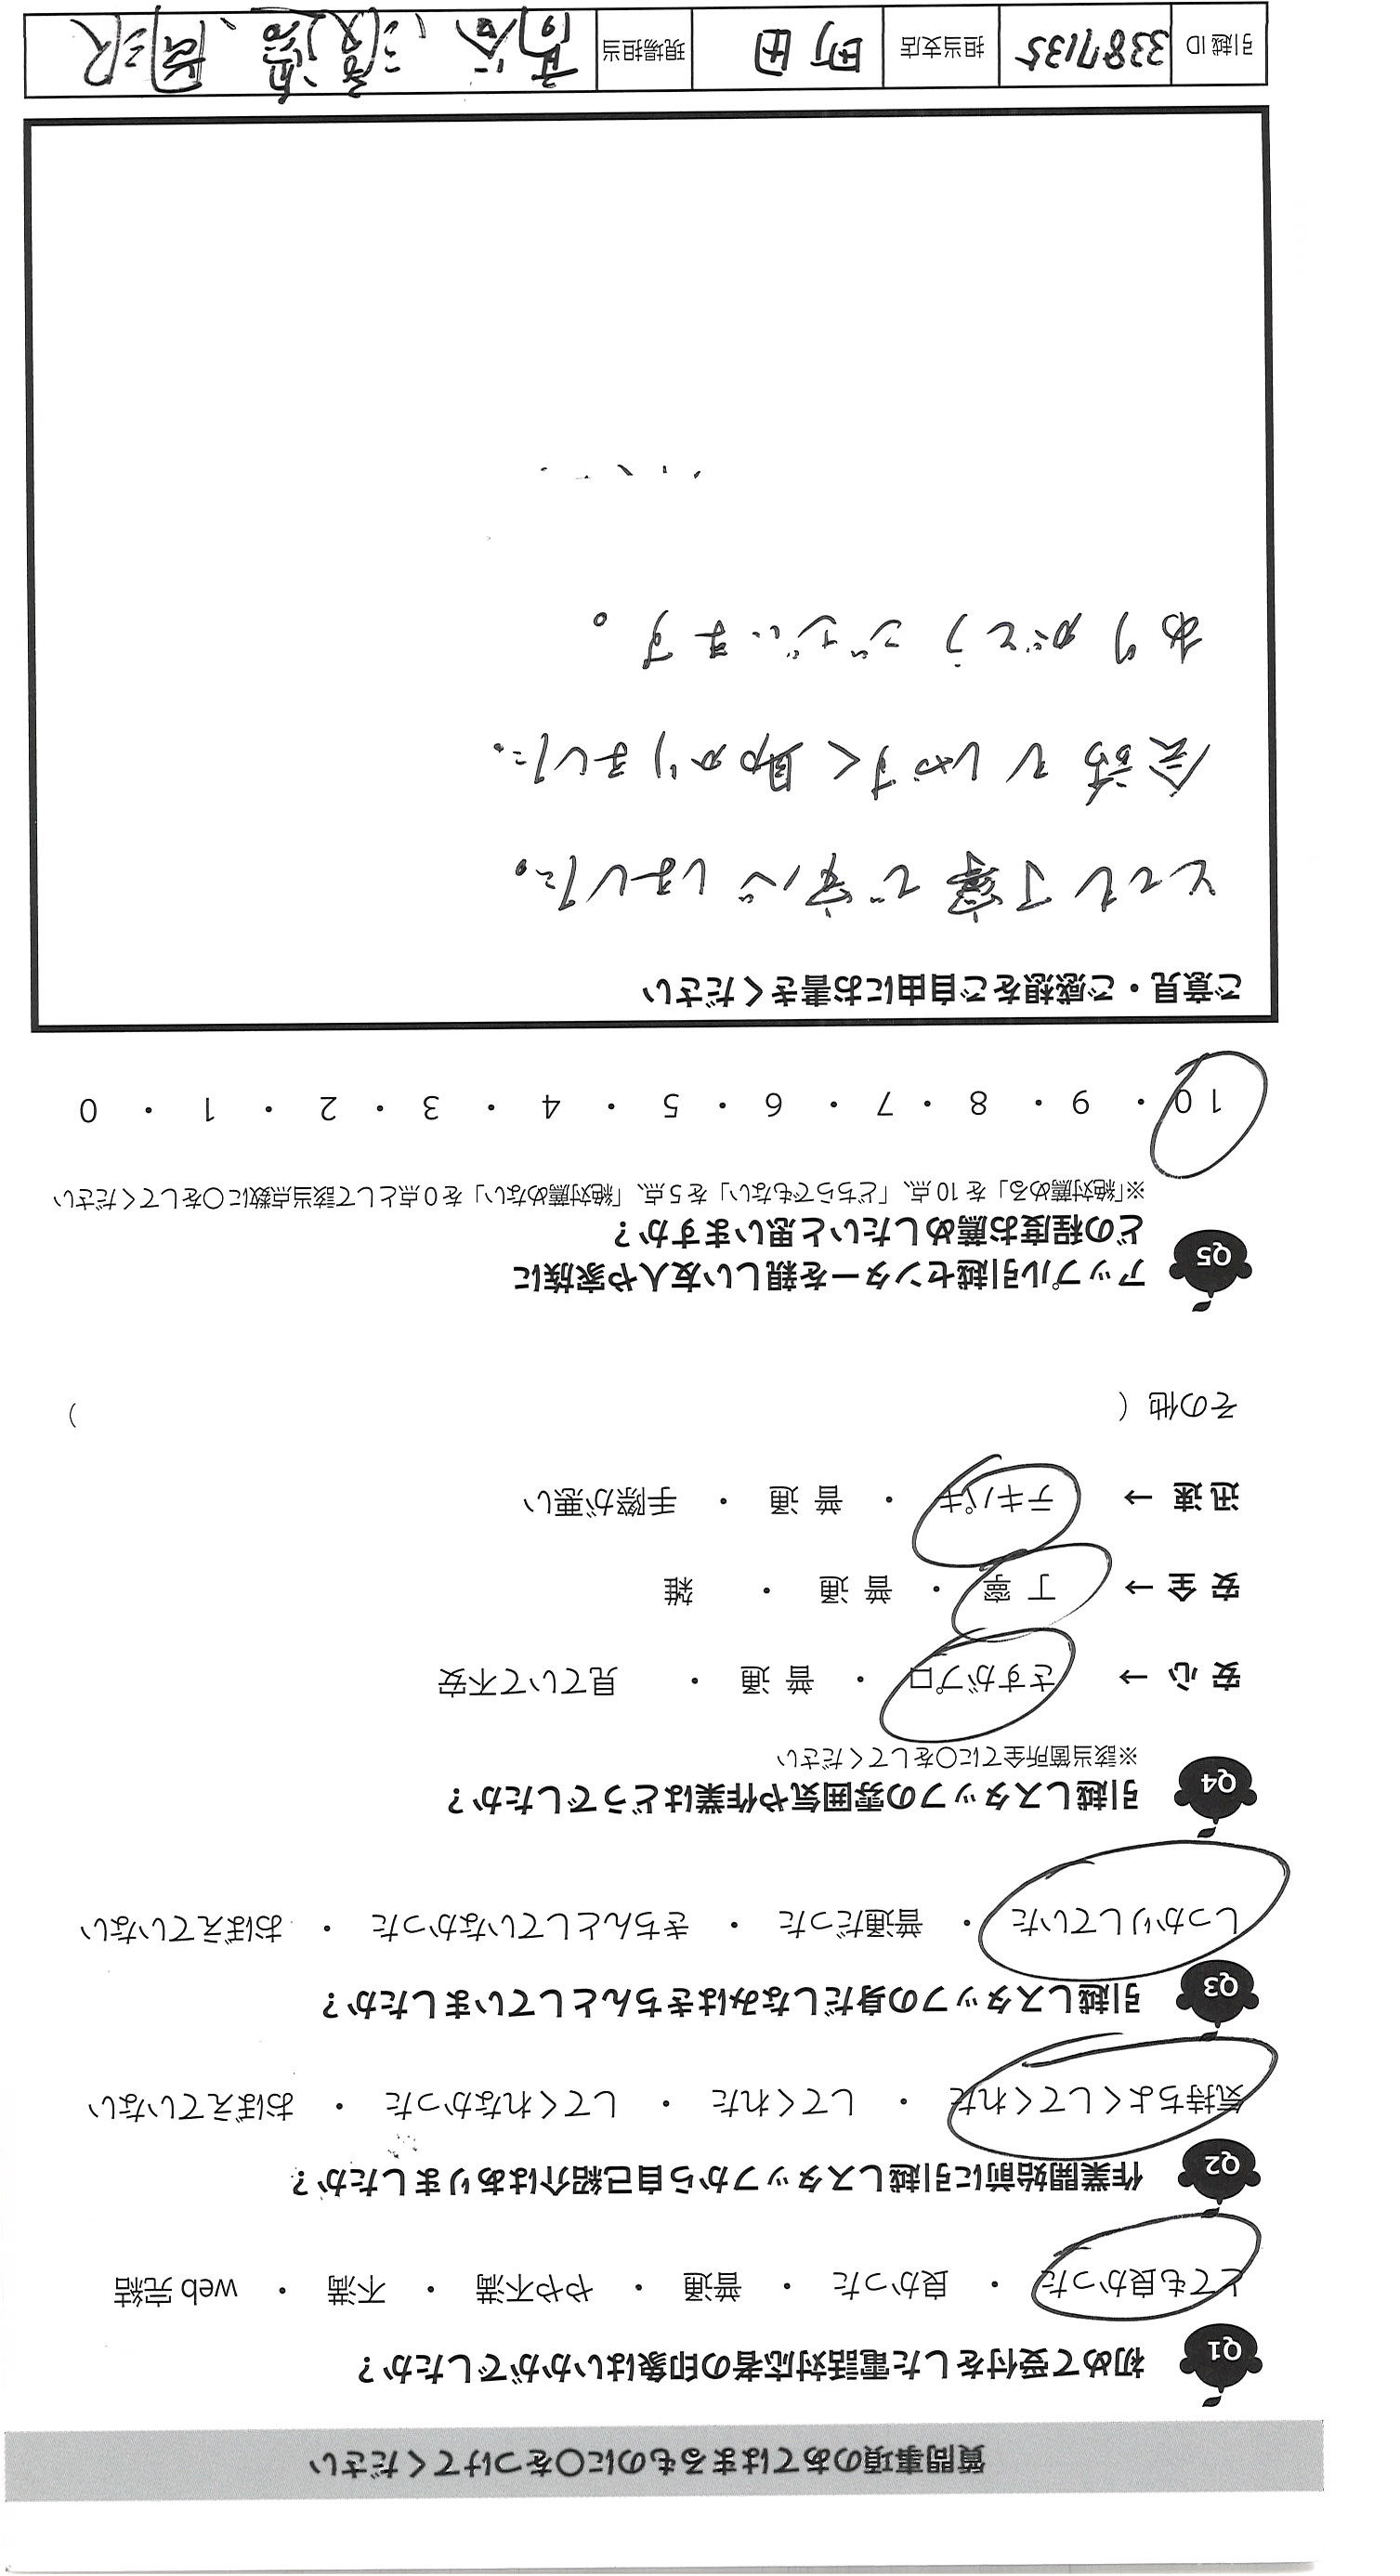 質問事項のあてはまるものに〇をつけてください
Q1 初めて受付をした電話対応者の印象はいかがでしたか？
とても良かった ・ 良かった ・ 普通 ・ やや不満 ・ 不満 ・ web 完結
Q2 作業開始前に引越しスタッフから自己紹介はありましたか？
気持ちよくしてくれた ・ してくれた ・ してくれなかった ・ おぼえていない
Q3 引越しスタッフの身だしなみはきちんとしていましたか？
しっかりしていた ・ 普通だった ・ きちんとしていなかった ・ おぼえていない
Q4 引越しスタッフの雰囲気や作業はどうでしたか？
※該当箇所全てに〇をしてください
安心 → さすがプロ ・ 普通 ・ 見ていて不安
安全 → 丁寧 ・ 普通 ・ 雑
迅速 → テキパキ ・ 普通 ・ 手際が悪い
その他 ( )
Q5 アップル引越センターを親しい友人や家族に
どの程度お薦めしたいと思いますか？
※「絶対薦める」を 10 点、「どちらでもない」を 5 点、「絶対薦めない」を 0 点として該当点数に〇をしてください
10 ・ 9 ・ 8 ・ 7 ・ 6 ・ 5 ・ 4 ・ 3 ・ 2 ・ 1 ・ 0
ご意見・ご感想をご自由にお書きください
とても丁寧で安心しました。
会話もしやすく助かりました。
ありがとうございます。
引越 ID 3387135 担当支店 町田 現場担当